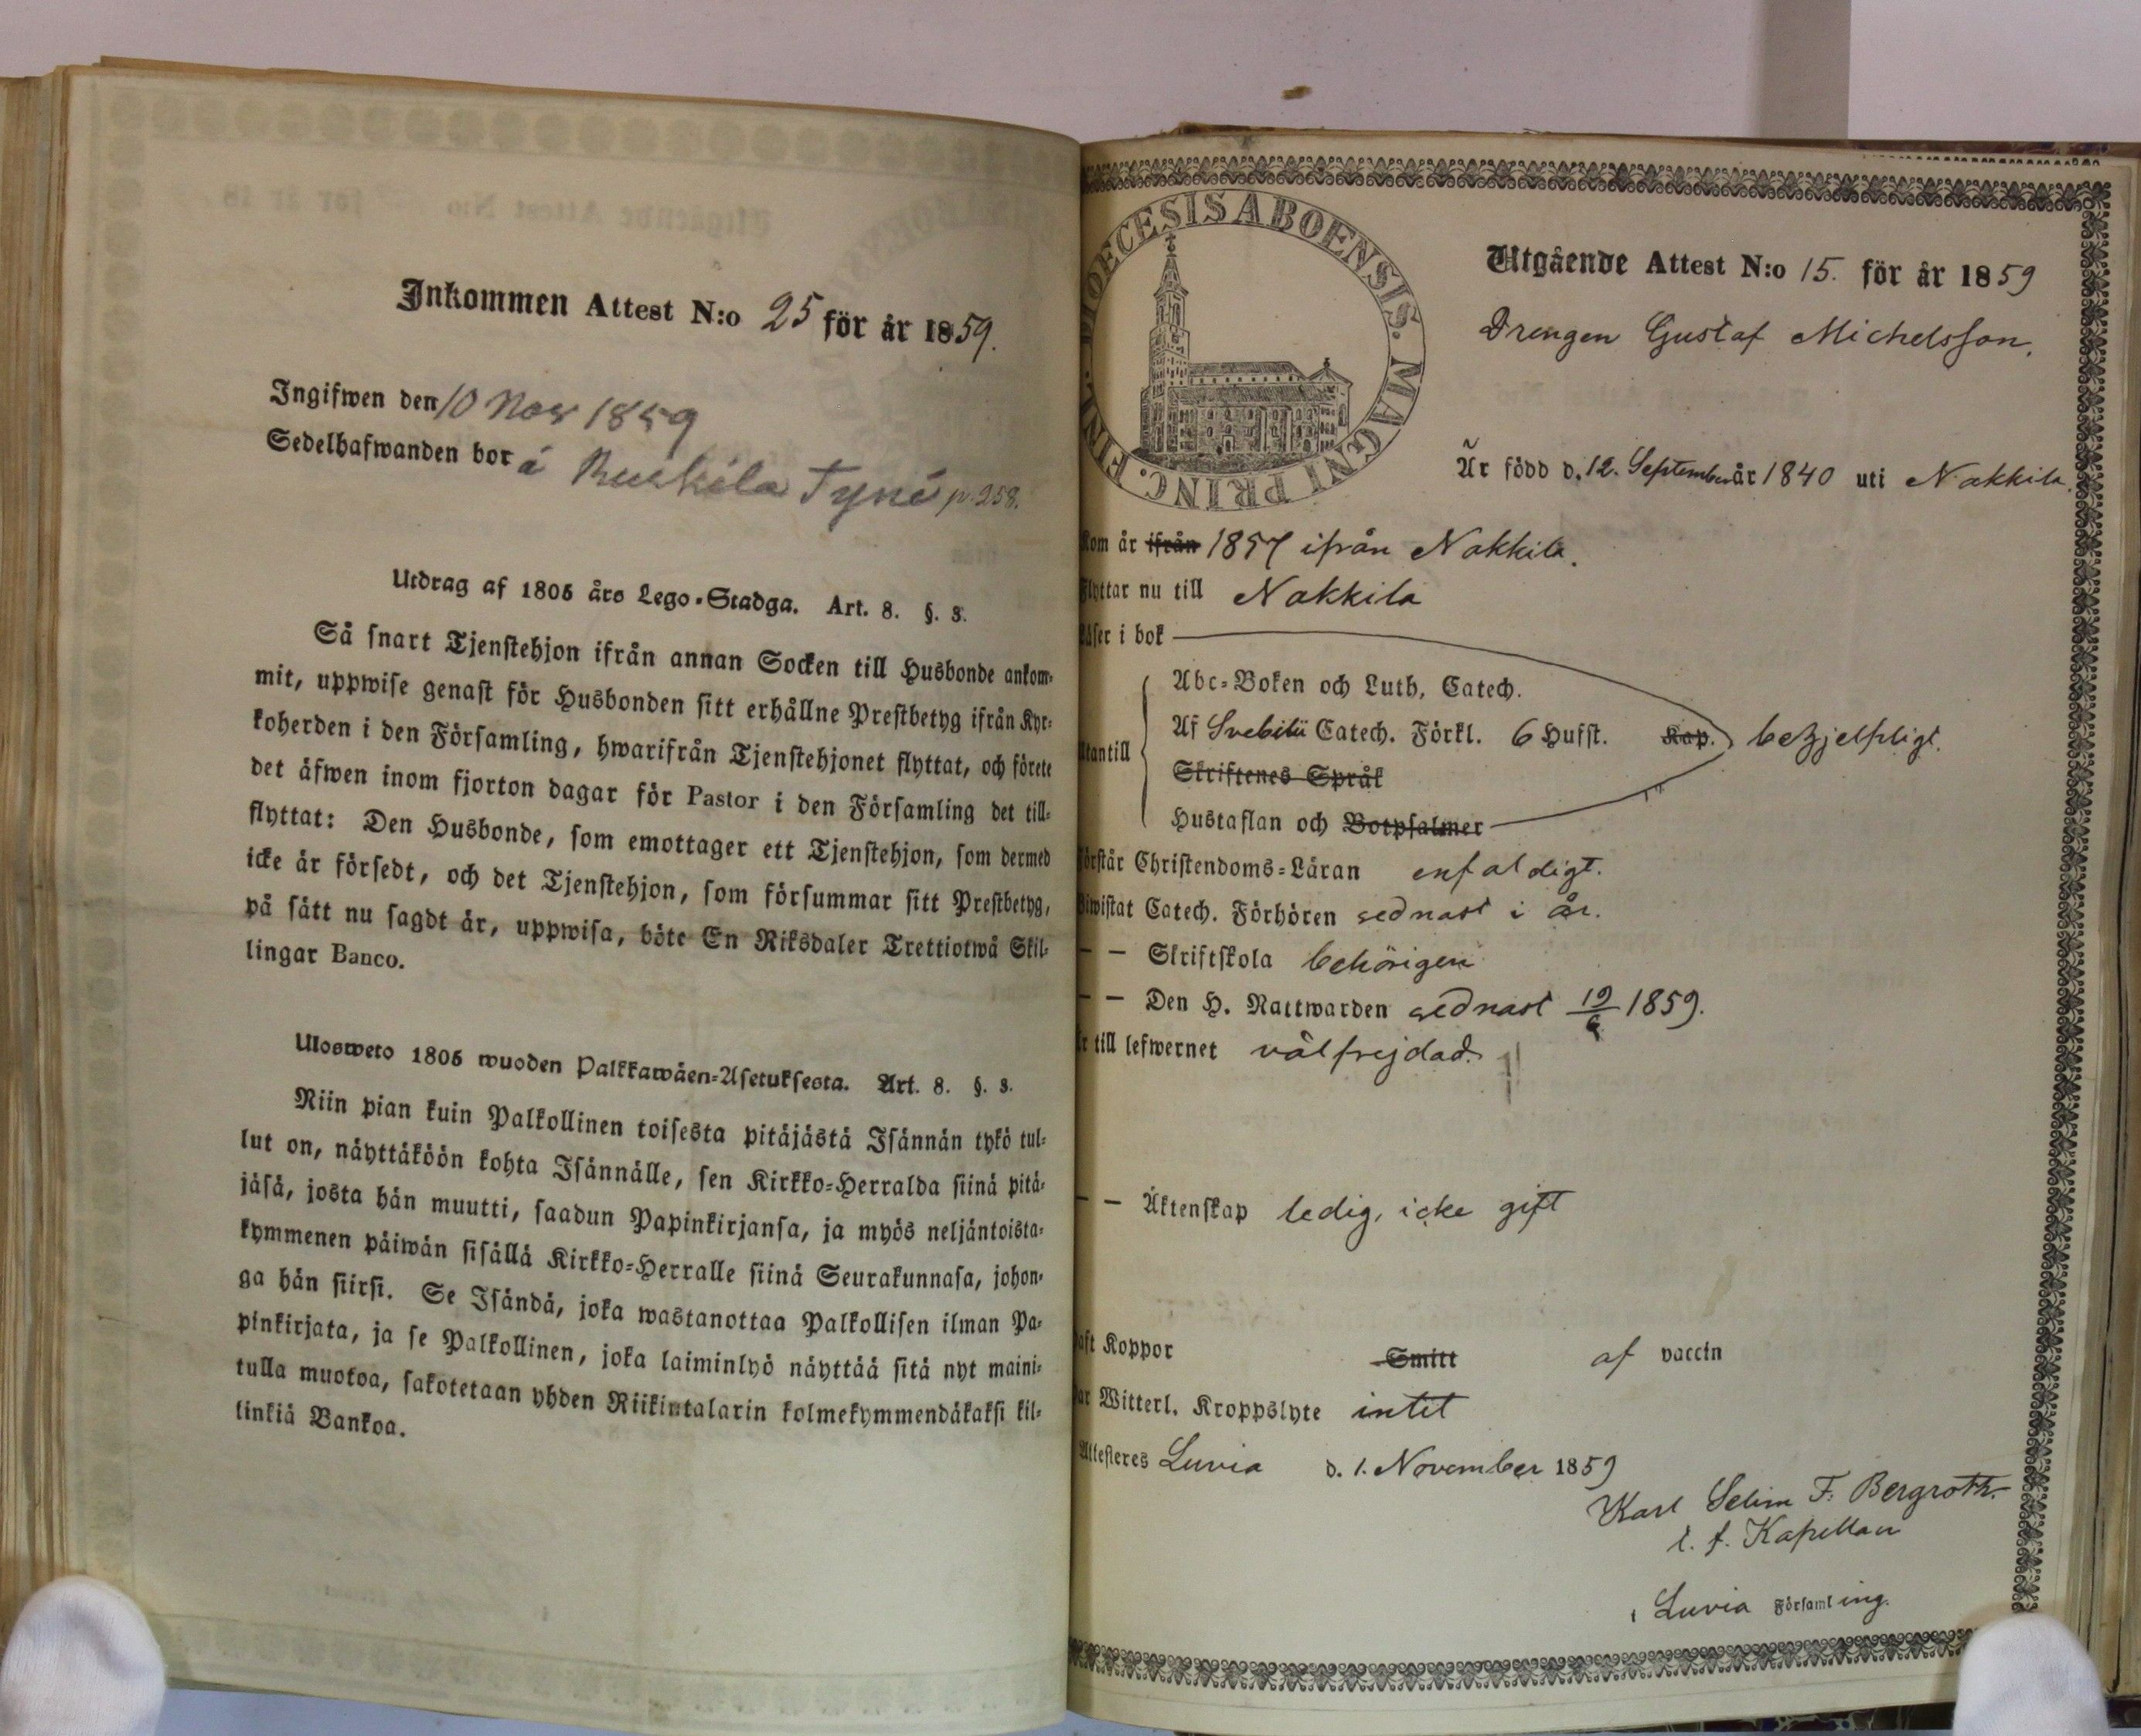 Inkommen Attest N:o 25 för år 1859.
Ingifwen den 10 Nov 1859
Sedelhafwanden bor å Ruskila Tyni p. 258.
Utdrag af 1805 års Lego-Stadga. Art. 8. §. 3.
Så snart Tjenstehjon ifrån annan Socken till Husbonde ankom-
mit, uppwise genast för Husbonden sitt erhållne Prestbetyg ifrån Kyr-
koherden i den Församling, hwarifrån Tjenstehjonet flyttat, och förete
det äfwen inom fjorton dagar för Pastor i den Församling det till-
flyttat: Den Husbonde, som emottager ett Tjenstehjon, som dermed
icke är försedt, och det Tjenstehjon, som försummar sitt Prestbetyg,
på sätt nu sagdt är, uppwisa, böte En Riksdaler Trettiotwå Skil-
lingar Banco.
Ulosweto 1805 wuoden Palkkawäen-Asetuksesta. Art. 8. §. 3.
Niin pian kuin Palkollinen toisesta pitäjästä Isännän tykö tul-
lut on, näyttäköön kohta Isännälle, sen Kirkko-Herralda siinä pitä-
jäsä, josta hän muutti, saadun Papinkirjansa, ja myös neljäntoista-
kymmenen päiwän sisällä Kirkko-Herralle siinä Seurakunnasa, johon-
ga hän siirsi. Se Isändä, joka wastanottaa Palkollisen ilman Pa-
pinkirjata, ja se Palkollinen, joka laiminlyö näyttää sitä nyt maini-
tulla muotoa, sakotetaan yhden Riikintalarin kolmekymmendäkaksi kil-
linkiä Bankoa.
DIOECESIS ABOENSIS. MAGNI PRINC. FINL.
Utgående Attest N:o 15. för år 1859
Drengen Gustaf Michelsson.
Är född d. 12. September år 1840 uti Nakkila.
Kom år ifrån 1857 ifrån Nakkila.
Flyttar nu till Nakkila
Läser i bok
Abc-Boken och Luth. Catech.
Af Svebilii Catech. Förkl. 6 Hufst. Kap. behjelpligt.
Utantill
Skriftenes Språk
Hustaflan och Botpsalmer
Förstår Christendoms-Läran enfaldigt.
Biwistat Catech. Förhören sednast i år.
— — Skriftskola behörigen
— — Den H. Nattwarden sednast 19/6 1859.
Är till lefwernet välfrejdad.
— — Äktenskap ledig, icke gift
Haft Koppor Smitt af vaccin
Har Witterl. Kroppslyte intet
Attesteres Luvia d. 1. November 1859
Karl Selim F: Bergroth.
t. f. Kapellan
i Luvia Församling.